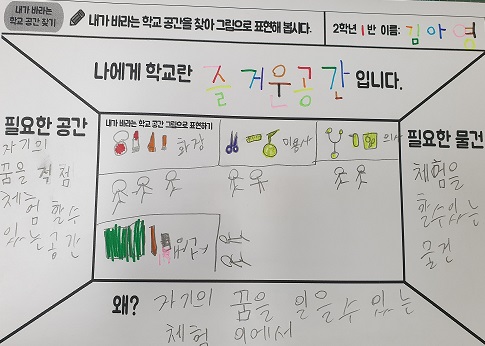 내가 바라는
학교 공간 찾기
내가 바라는 학교 공간을 찾아 그림으로 표현해 봅시다.
2학년 1반 이름: 김아영
나에게 학교란 즐거운공간 입니다.
필요한 공간
자기의
꿈을
체험 할수
있는 공간
내가 바라는 학교 공간 그림으로 표현하기
화장
미용사
의사
필요한 물건
체험을
할수있는
물건
왜? 자기의 꿈을 있을수 있는
체험